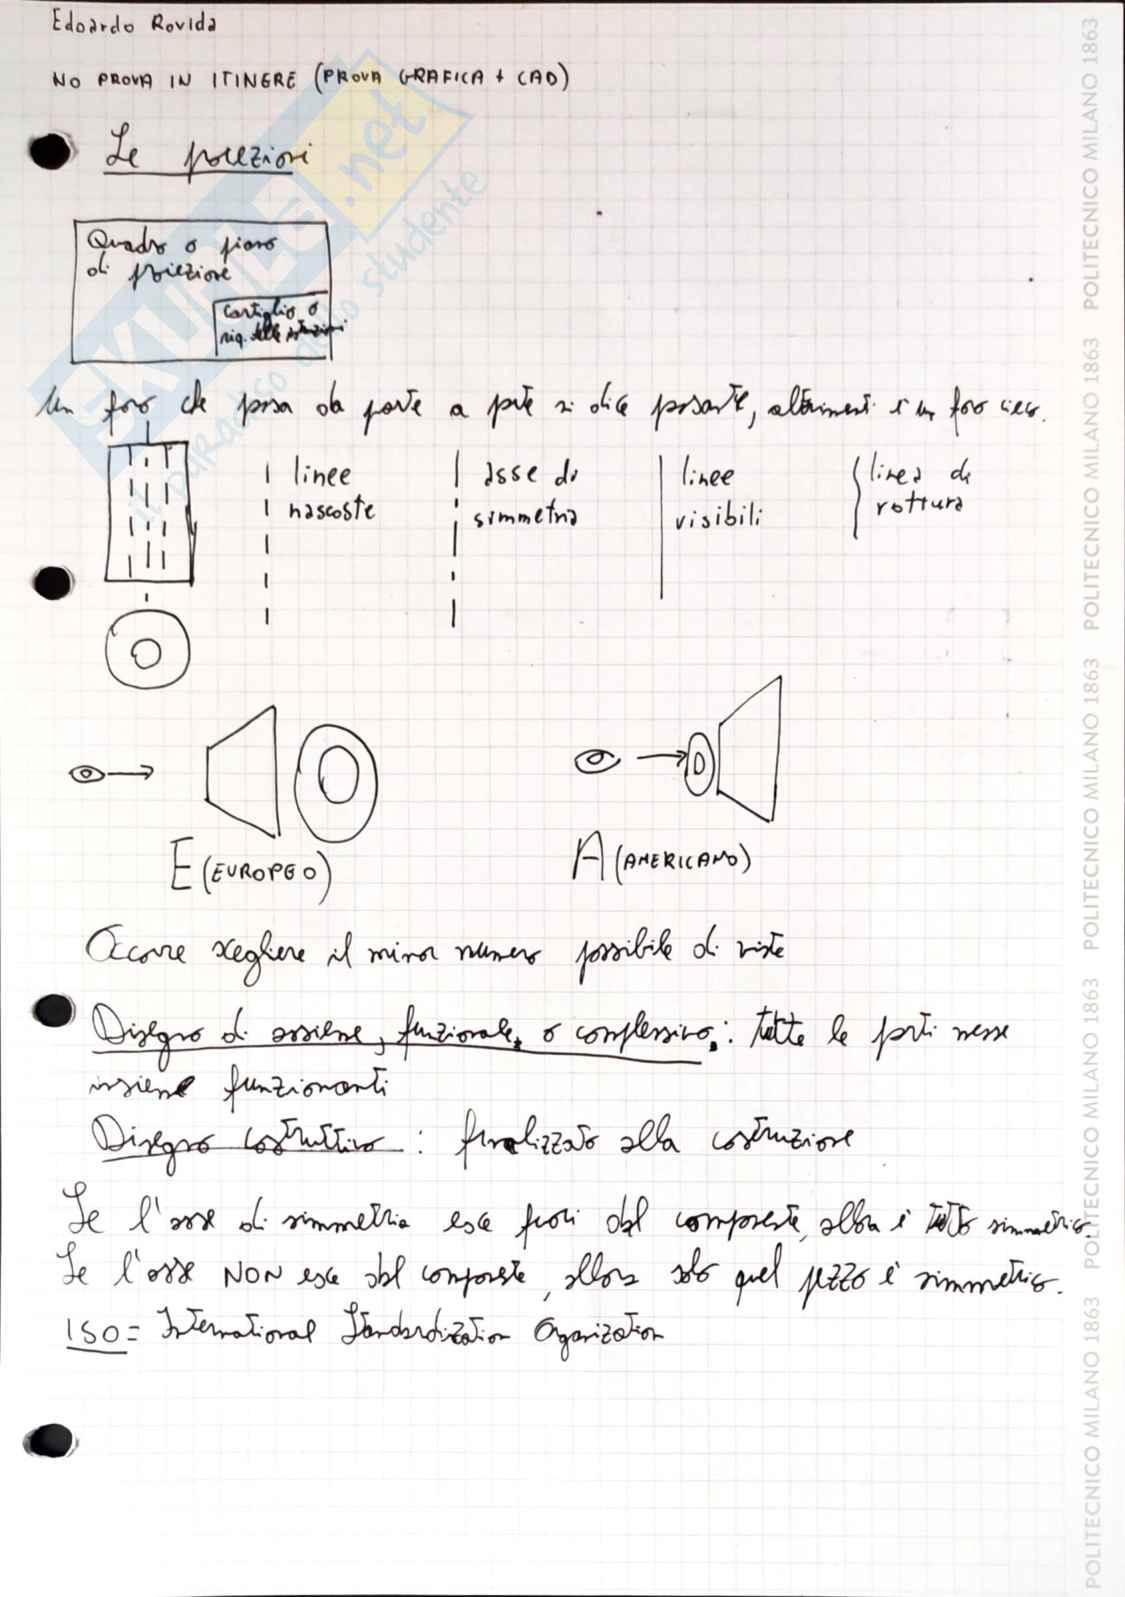 Edoardo Rovida
NO PROVA IN ITINERE (PROVA GRAFICA + CAD)
Le proiezioni
Quadro o piano
di proiezione
Cartiglio o
riq. delle istruzioni
Un foro che passa da parte a parte si dice passante, altrimenti è un foro cieco.
linee
nascoste
asse di
simmetria
linee
visibili
linea di
rottura
E (EUROPEO)
A (AMERICANO)
Occorre scegliere il minor numero possibile di viste
Disegno di assieme, funzionale, o complessivo: tutte le parti messe
insieme funzionanti
Disegno costruttivo: finalizzato alla costruzione
Se l'asse di simmetria esce fuori dal componente, allora è tutto simmetrico.
Se l'asse NON esce dal componente, allora solo quel pezzo è simmetrico.
ISO = International Standardization Organization
SKUOLA.net
il paradiso dello studente
POLITECNICO MILANO 1863
POLITECNICO MILANO 1863
POLITECNICO MILANO 1863
POLITECNICO MILANO 1863
POLITECNICO MILANO 1863